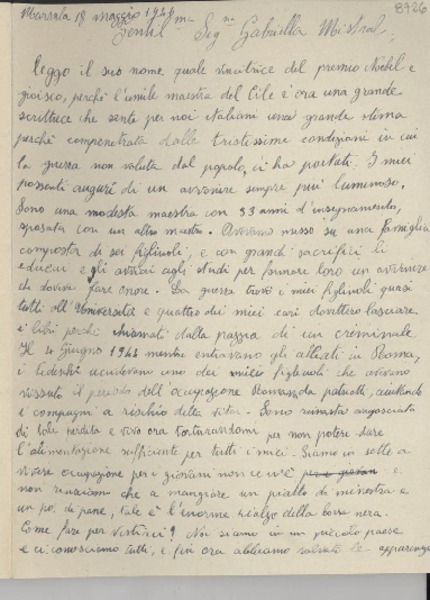 8726
Marsala 18 maggio 1946
Gentil.ma Sig.na Gabriella Mistral,
Leggo il suo nome quale vincitrice del premio Nobel e
gioisco, perché l'umile maestra del Cile è ora una grande
scrittrice che sente per noi italiani una grande stima
perché compenetrata dalle tristissime condizioni in cui
la guerra non voluta dal popolo, ci ha portati. I miei
possenti auguri di un avvenire sempre più luminoso.
Sono una modesta maestra con 33 anni d'insegnamento,
sposata con un altro maestro. Avevamo messo su una famiglia
composta di sei figliuoli, e con grandi sacrifici li
educai e gli avviai agli studi per formare loro un avvenire
che doveva fare onore. La guerra trovò i miei figliuoli quasi
tutti all'Università e quattro dei miei cari dovettero lasciare
i libri perché chiamati dalla pazzia di un criminale
Il 4 Giugno 1944 mentre entravano gli alleati in Roma,
i tedeschi uccidevano uno dei miei figliuoli che avevano
vissuto il periodo dell'occupazione Romana da patrioti, aiutando
i compagni a rischio della vita. Sono rimasta angosciata
di tale perdita e vivo ora torturandomi per non potere dare
l'alimentazione sufficiente per tutti i miei. Siamo in sette a
vivere occupazione per i giovani non ce n'è e
non riusciamo che a mangiare un piatto di minestra e
un po' di pane, tale è l'enorme rialzo della borsa nera.
Come fare per vestirci? Noi siamo in un piccolo paese
e ci conosciamo tutti, e fin ora abbiamo salvato le apparenze